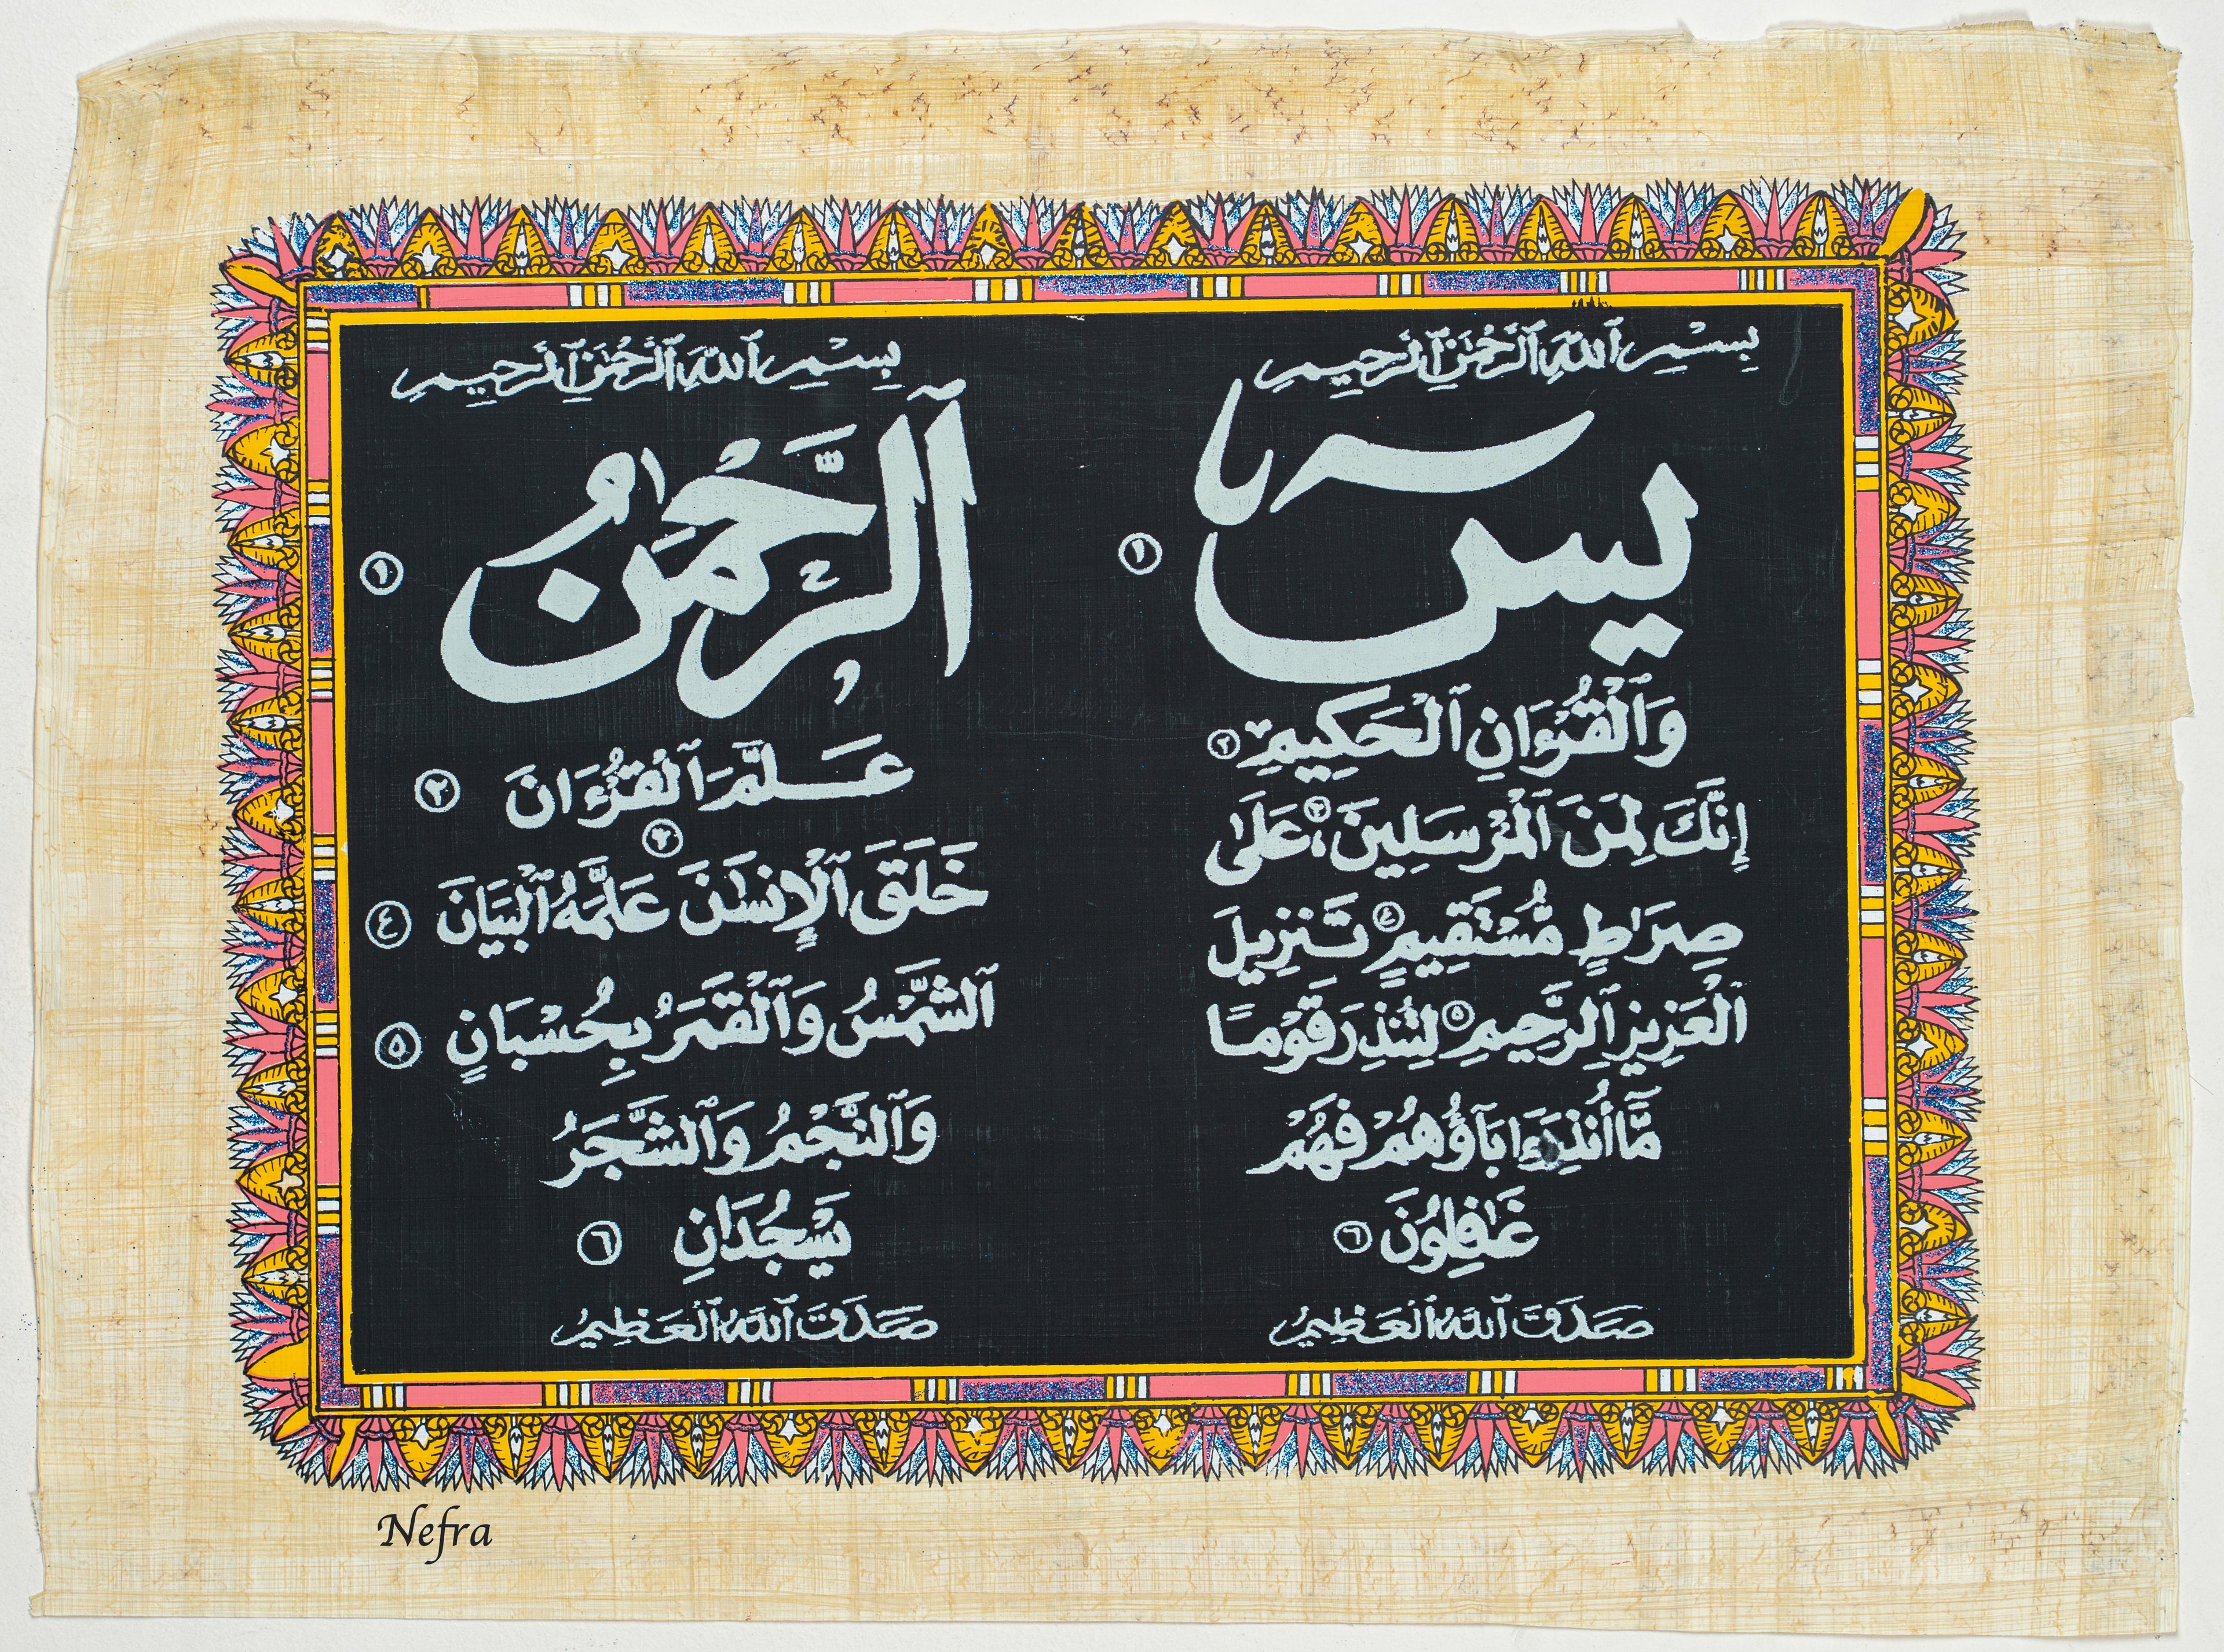 بِسْمِ ٱللَّهِ ٱلرَّحْمَٰنِ ٱلرَّحِيمِ
يسٓ ١
وَٱلْقُرْءَانِ ٱلْحَكِيمِ ٢
إِنَّكَ لَمِنَ ٱلْمُرْسَلِينَ ٣ عَلَىٰ
صِرَٰطٍ مُّسْتَقِيمٍ ٤ تَنزِيلَ
ٱلْعَزِيزِ ٱلرَّحِيمِ ٥ لِتُنذِرَ قَوْمًا
مَّا أُنذِرَ ءَابَآؤُهُمْ فَهُمْ
غَٰفِلُونَ ٦
صَدَقَ ٱللَّهُ ٱلْعَظِيمُ
بِسْمِ ٱللَّهِ ٱلرَّحْمَٰنِ ٱلرَّحِيمِ
ٱلرَّحْمَٰنُ ١
عَلَّمَ ٱلْقُرْءَانَ ٢
خَلَقَ ٱلْإِنسَٰنَ ٣ عَلَّمَهُ ٱلْبَيَانَ ٤
ٱلشَّمْسُ وَٱلْقَمَرُ بِحُسْبَانٍ ٥
وَٱلنَّجْمُ وَٱلشَّجَرُ
يَسْجُدَانِ ٦
صَدَقَ ٱللَّهُ ٱلْعَظِيمُ
Nefra